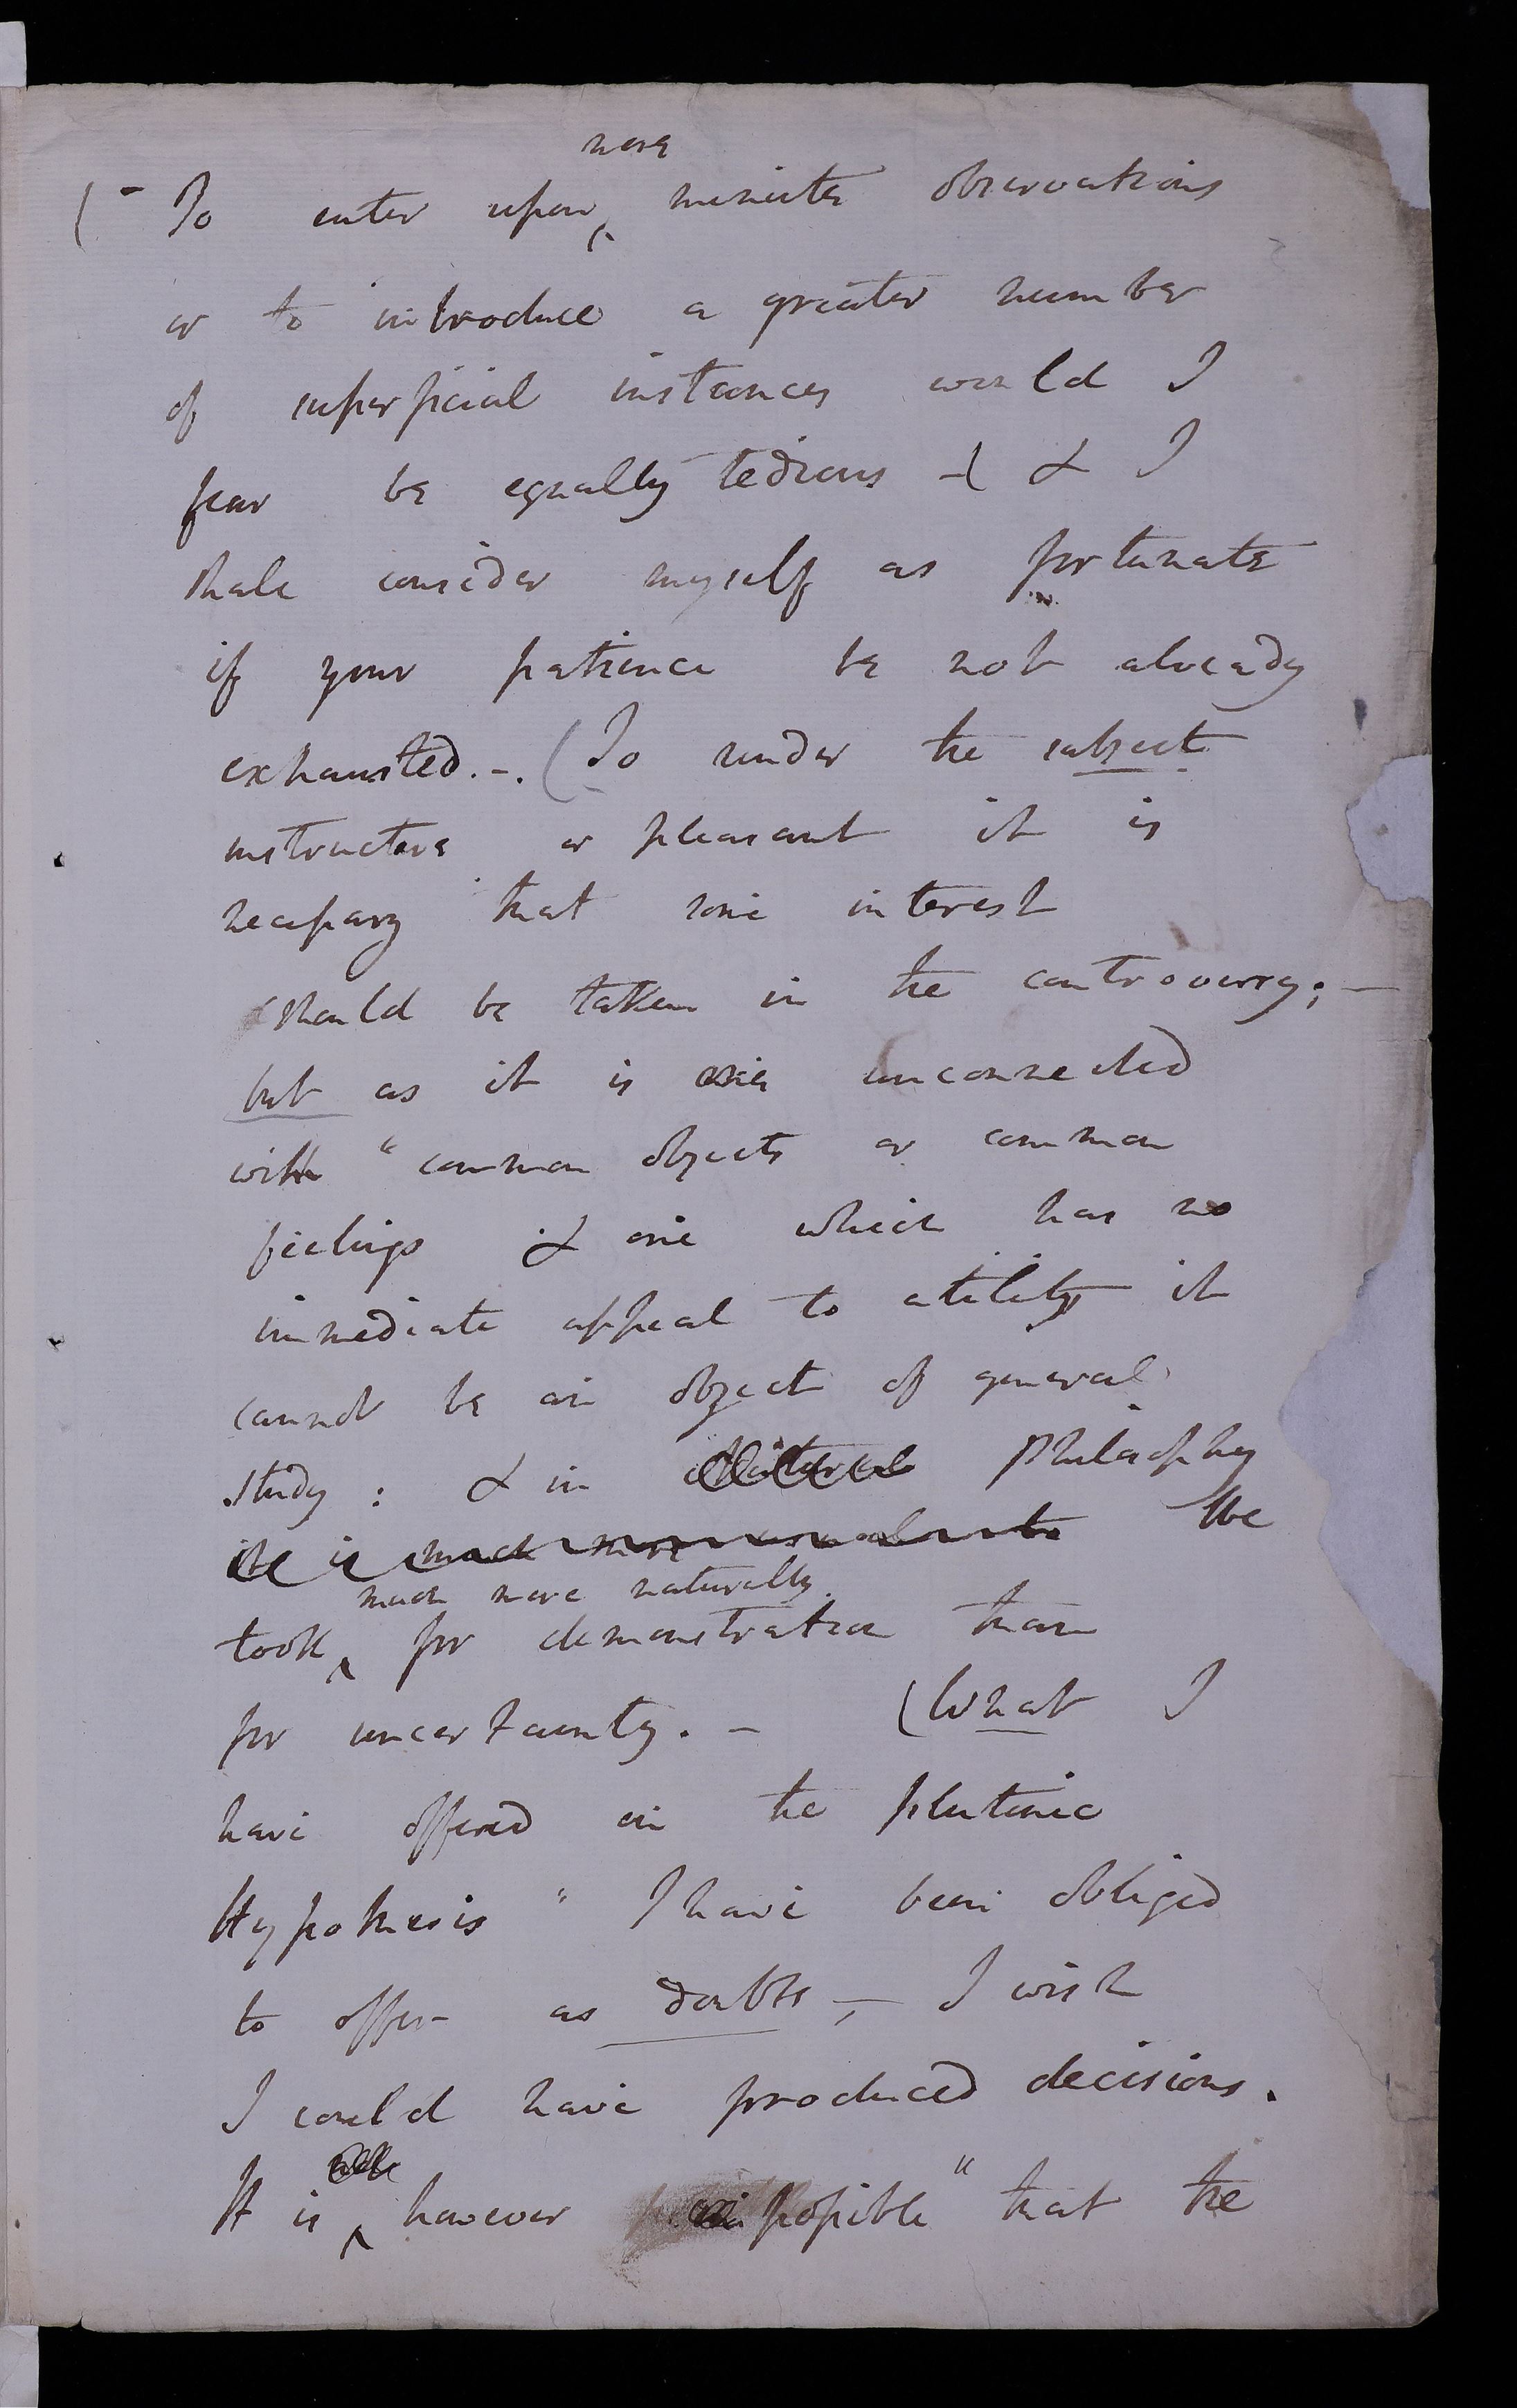 more
(- To enter upon minute observations
or to introduce a greater number
of superficial instances would I
fear be equally tedious -( & I
shall consider myself as fortunate
if your patience be not already
exhausted. -. (To render the subject
instructive or pleasant it is
necessary that some interest
should be taken in the controversy; -
but as it is one unconnected
with " common objects or common
feelings & one which has no
immediate appeal to utility it
cannot be an object of general
study : & in Natural Philosophy
it is much more usual to We
much more naturally
look for demonstration than
for uncertainty. - (What I
have offered on the plutonic
Hypothesis " I have been obliged
to offer as doubts, - I wish
I could have produced decisions.
It is however possible " that the